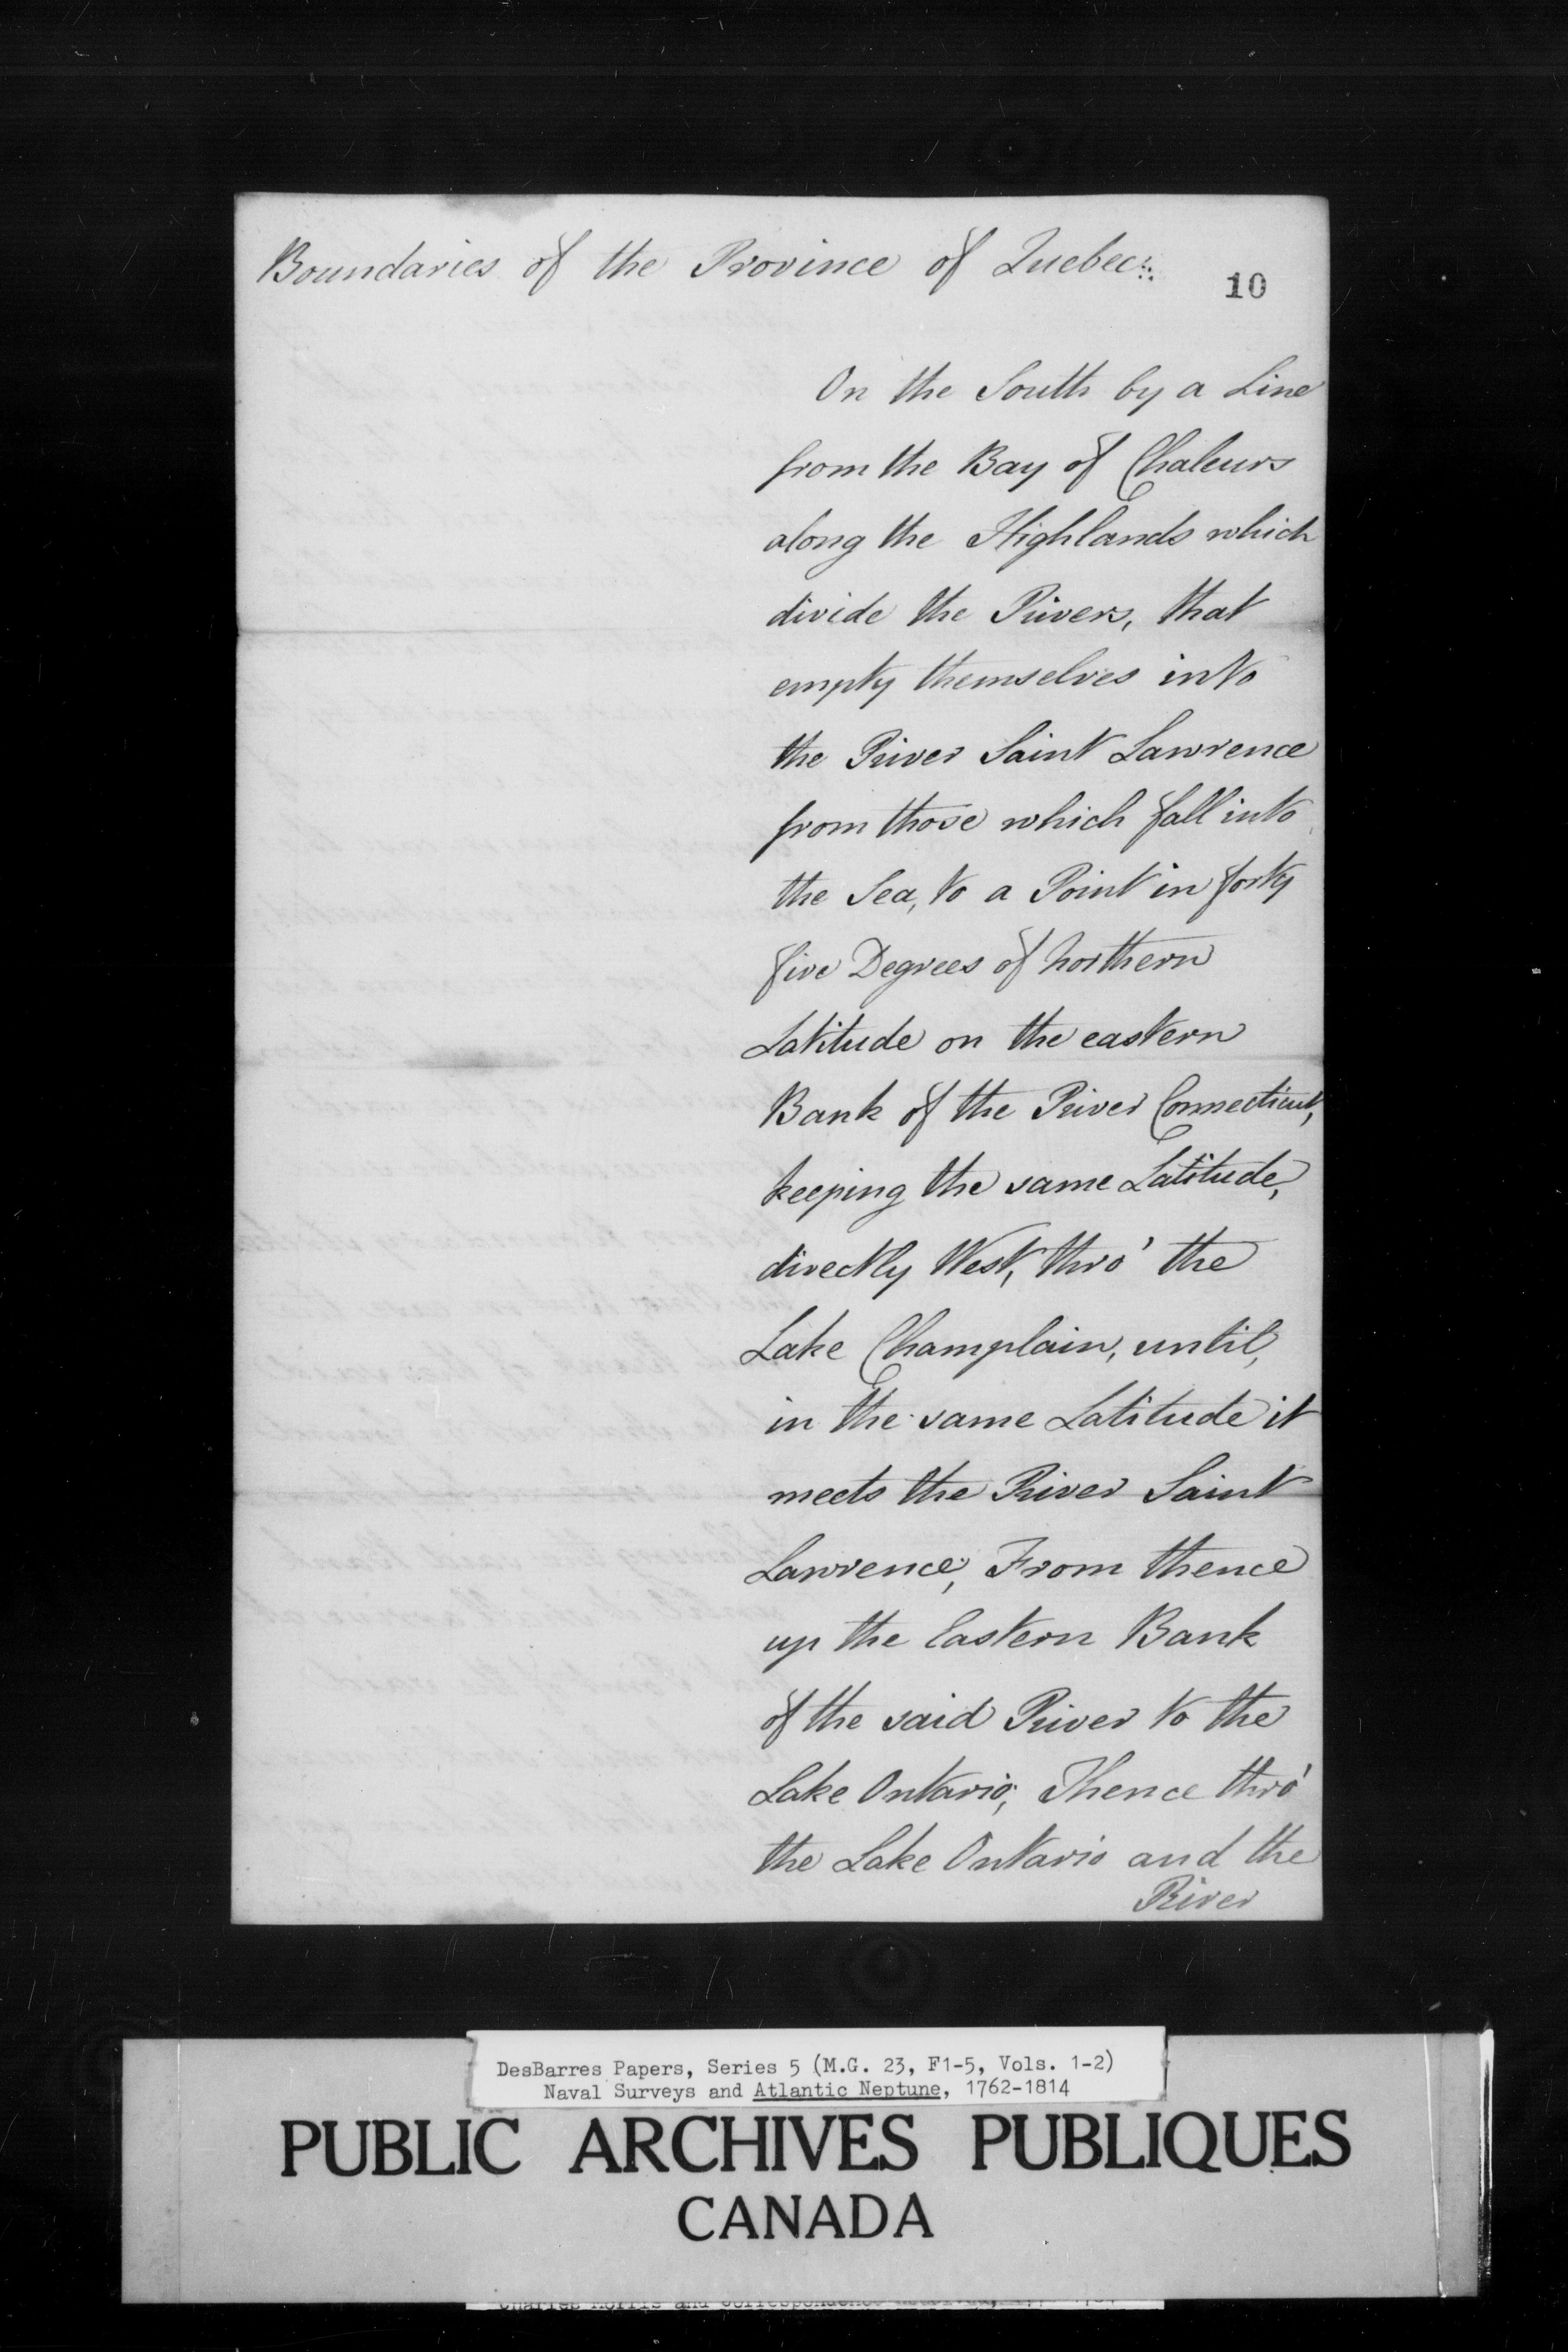 Boundaries of the Province of Quebec:.
10
On the South by a Line
from the Bay of Chaleurs
along the Highlands which
divide the Rivers, that
empty themselves into
the River Saint Lawrence
from those which fall into
the Sea, to a Point in forty
five Degrees of northern
Latitude on the eastern
Bank of the River Connecticut,
keeping the same Latitude,
directly West, thro' the
Lake Champlain, until,
in the same Latitude it
meets the River Saint
Lawrence, From thence
up the Eastern Bank
of the said River to the
Lake Ontario; Thence thro'
the Lake Ontario and the
River
DesBarres Papers, Series 5 (M.G. 23, F1-5, Vols. 1-2)
Naval Surveys and Atlantic Neptune, 1762-1814
PUBLIC ARCHIVES PUBLIQUES
CANADA
Charles Morris and